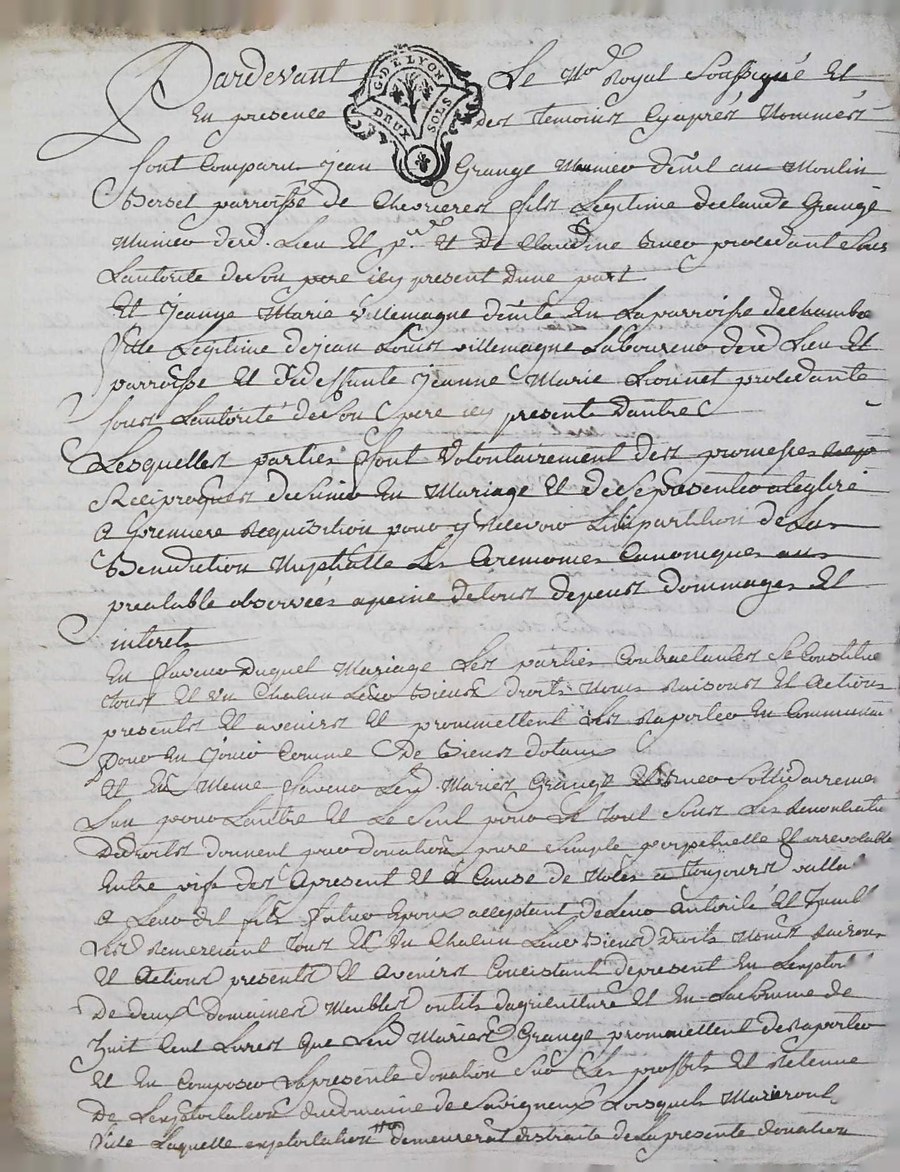 Pardevant Le No.re Royal Soussigné Et
G.D.E LYON
DEUX SOLS
En presence des temoins Cyaprés Nommés
sont Comparu jean Grange Munier demt au Moulin
Berset parroisse de Chevrieres fils Legitime declaude Grange
Munier dud. Lieu Et Et De Claudine procedant sous
Lautorité deson pere icy present dune part
Et jeanne Marie villemagne demte En Laparroisse dechambe
fille Legitime dejean Louis villemagne Laboureur dud Lieu Et
parroisse Et de deffunte jeanne Marie Lionnet procedante
sous Lautorité deson pere icy presente dautre
Lesquelles parties sont volontairement des promesses
Reciproques desunir En Mariage Et desepresenter aleglise
a premiere Requisition pour y Recevoir Limpartition dela
Benediction Nuptialle Les Ceremonies Canoniques au
prealable observées apeine detous depens dommages Et
interets
En faveur Duquel Mariage Les parties Contractantes se Constitue
tous Et un Chacun Leur Biens droits Noms Raisons Et Actions
presents Et avenirs Et promettent Les Raporter En Communion
pour En jouir Comme De Biens dotaux
Et En Meme faveur Lesd Maries Grange Et sollidairemen
Lun pour Lautre Et Le seul pour Le tout sous Les Renonciatio
Dedroits donnent par donation pure simple perpetuelle Et irrevocable
Entre vifs des apresent Et a Cause de Noces a toujours valla
a Leur dit fils futur Epoux acceptant de Leur autorité Et humbl
Les Remerciant tous Et un Chacun Leur Biens Droits Noms Raisons
Et Actions presents Et avenirs Concistant depresent En Lexploi
De deux domaines Meubles outils dagriculture Et En La somme de
huit Cent Livres que Lesd Maries Grange promettent deRaporter
Et En Composer Lapresente donation sur Les proffits Et Retenue
De Lexploitation dudomaine de savigneux Lorsquils
Laquelle exploitation demeurera distraite de Lapresente donation